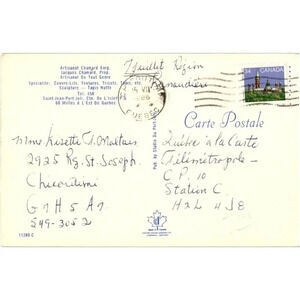 Artisanat Chamard Enrg.
Jacques Chamard, Prop.
Artisanat De Tout Genre
Specialité: Couvre-Lits, Tentures, Tricots, Etc
Sculpture -- Tapis Natté
Tel. 458
Saint-Jean-Port-Joli, Cte. De L'Islet
60 Milles à L'Est De Québec
7 juillet Région
CANADA
34
QUEBEC
Carte Postale
Mme Lisette T. Maltais
2925 Rg. St. Joseph.
Chicoutimi
G7H 5A7
549-3052
Québec à la Carte
Télémétropole -
C.P. 10
Station C
H2L 4J8
11280-C